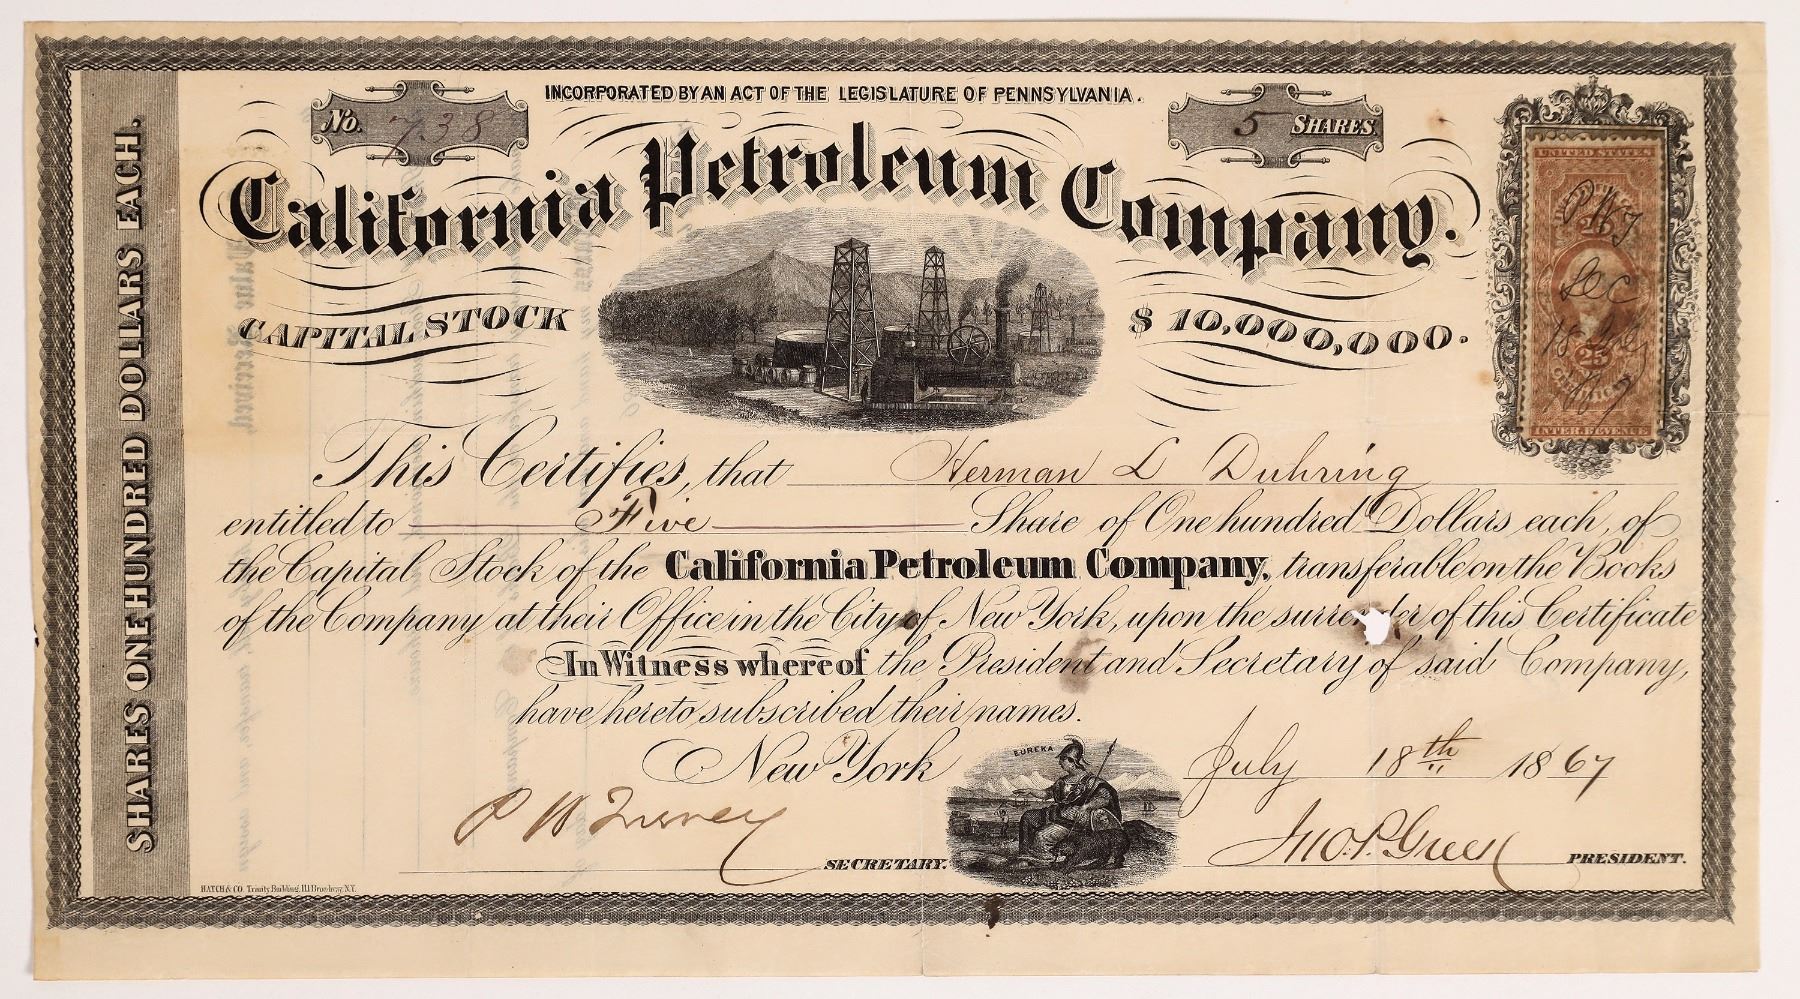 INCORPORATED BY AN ACT OF THE LEGISLATURE OF PENNSYLVANIA.
No. 738
5 SHARES.
California Petroleum Company.
CAPITAL STOCK $10,000,000.
SHARES ONE HUNDRED DOLLARS EACH.
UNITED STATES
Sec
25
CERTIFICATE
INTER. REVENUE
This Certifies, that Herman L Duhring
entitled to Five Share of One hundred Dollars each, of
the Capital Stock of the California Petroleum Company, transferable on the Books
of the Company at their Office in the City of New York, upon the surrender of this Certificate
In Witness whereof the President and Secretary of said Company,
have hereto subscribed their names.
New York July 18th 1867
EUREKA
SECRETARY.
Jno. P. Green PRESIDENT.
HATCH & CO. Trinity Building, 111 Broadway, N.Y.